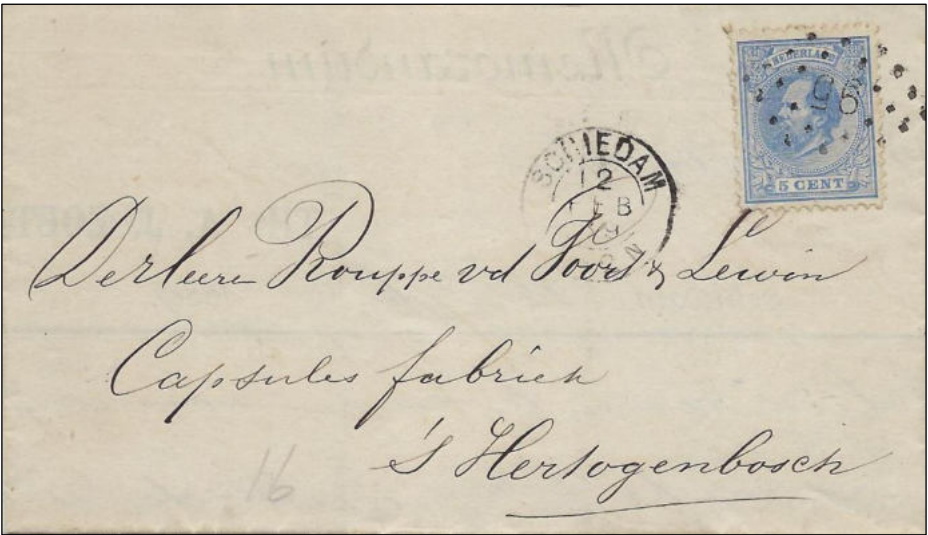 Memorandum
NEDERLAND
96
5 CENT
SCHIEDAM
12
FEB
Der Heeren Rouppe vd Voort & Lewin
Capsules fabriek
's Hertogenbosch
16